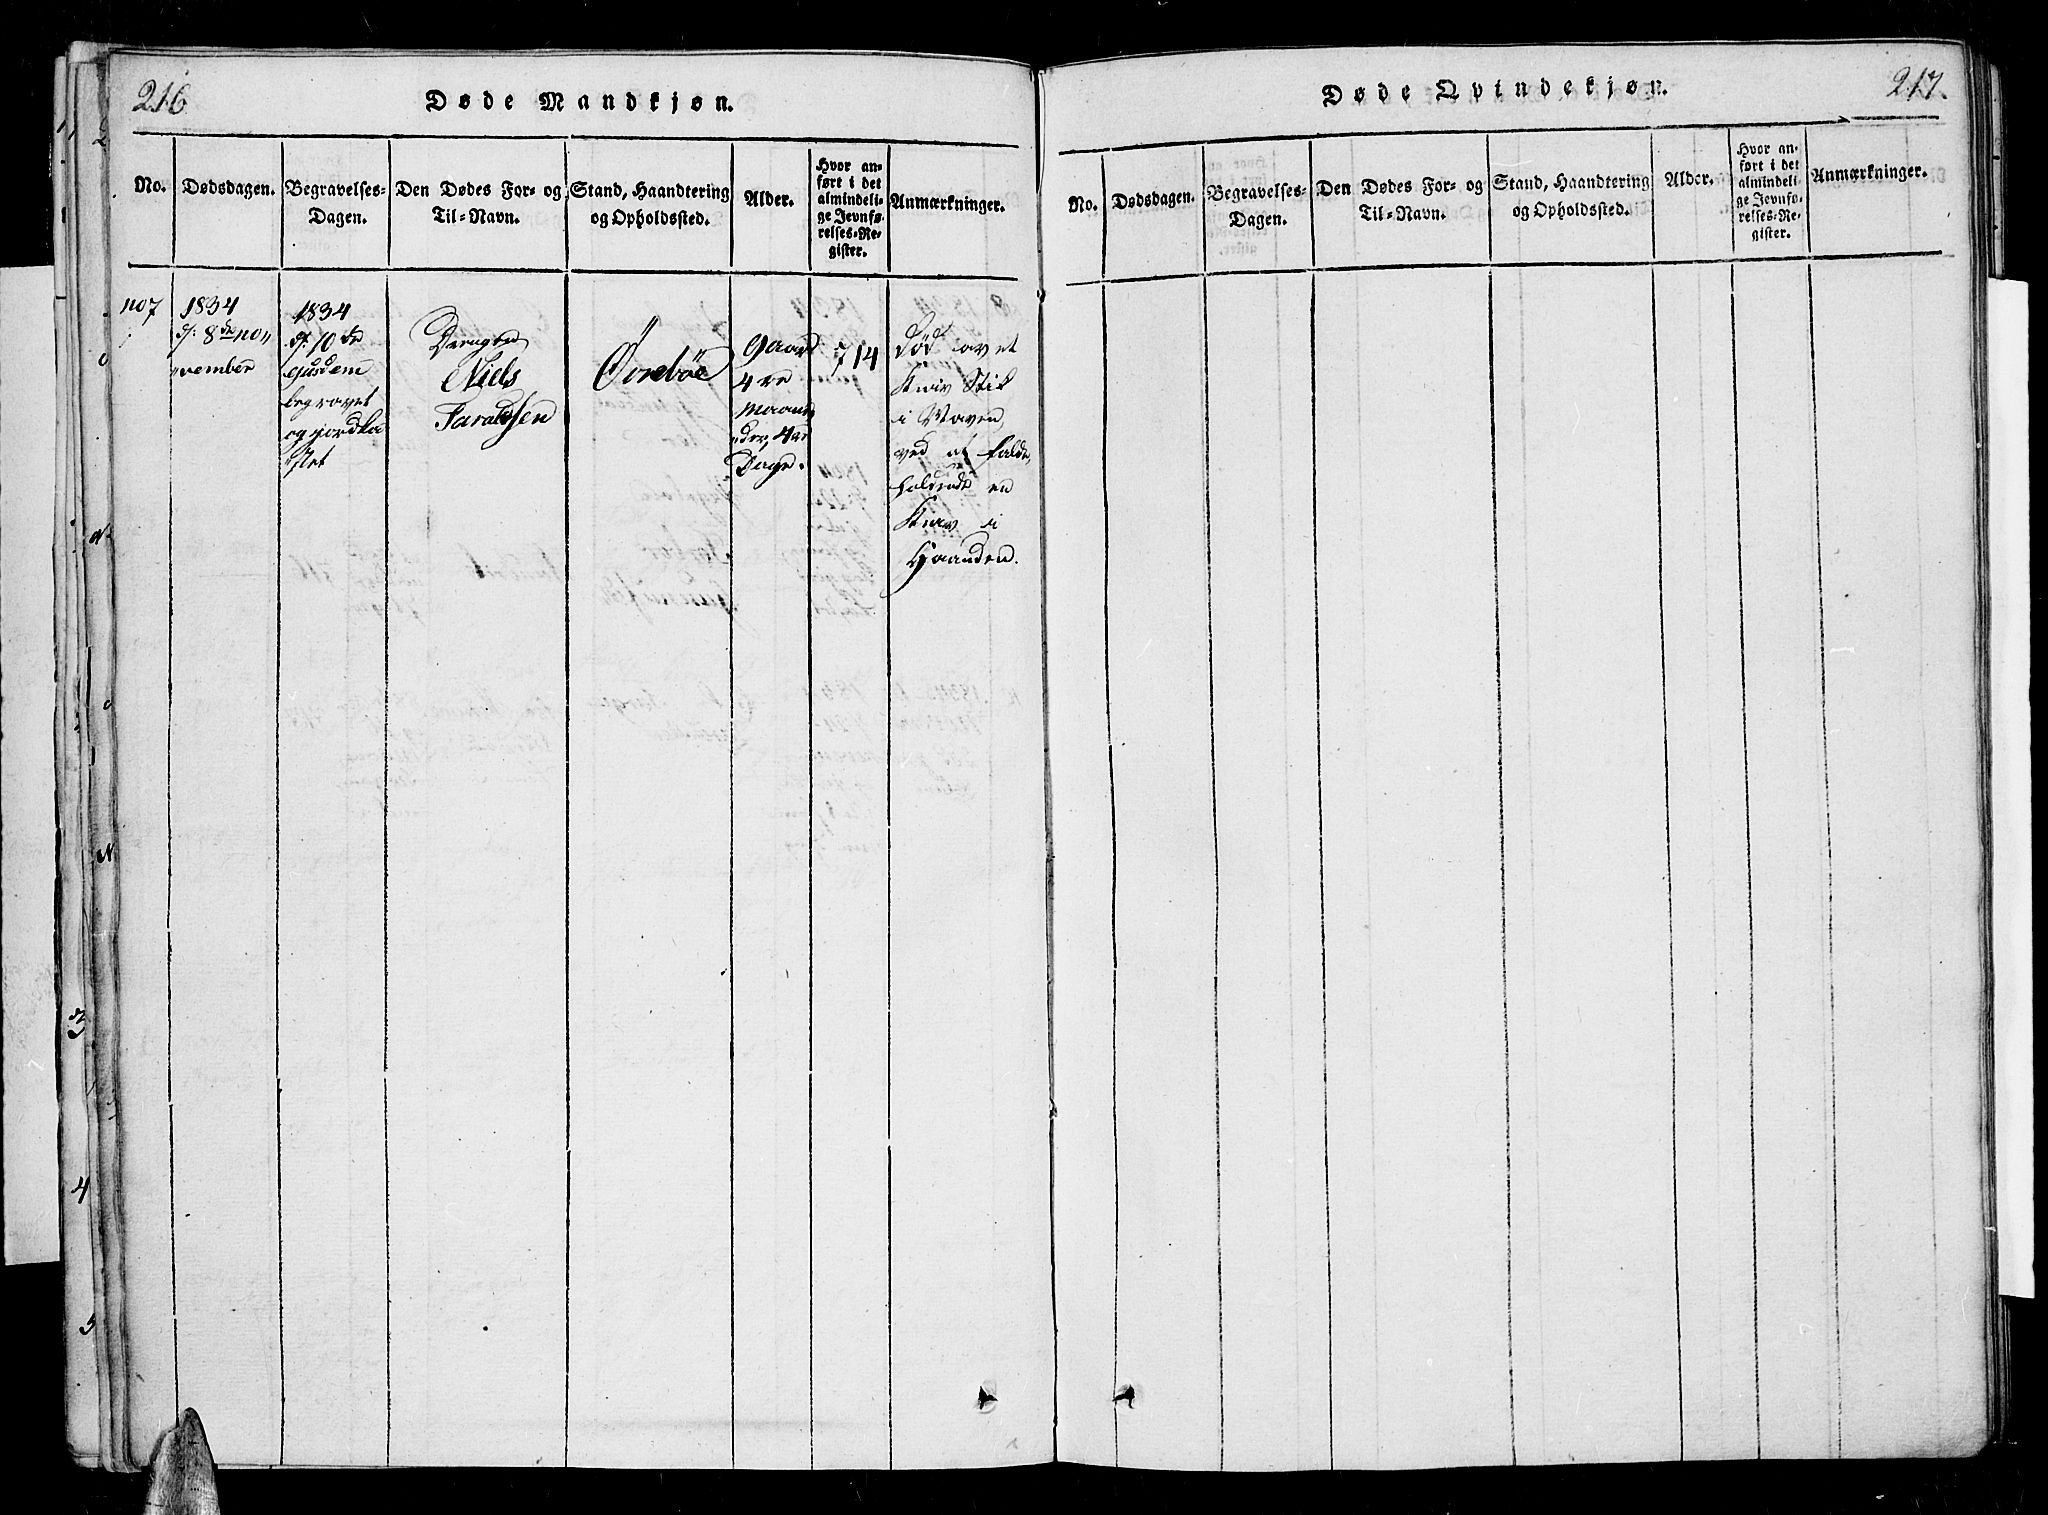 216
Døde Mandkjøn.
No.
Dødsdagen.
Begravelses-
Dagen.
Den Dødes For- og
Til-Navn.
Stand, Haandtering
og Opholdssted.
Alder.
Hvor an-
ført i det
almindeli-
ge Jevnfø-
relses-Re-
gister.
Anmærkninger.
no 7
1834
d: 8de no„
„vember
1834
d: 10de
ejusdem
begravet
og jordka
„stet
Drengen
Niels
Taraldsen
Öreböe
9 aar
4re
maane
„der, 4re
Dage.
714
Död av et
Kniv Stik
i Maven,
ved at falde,
en
Kniv i
Haanden.
217.
Døde Qvindekjøn.
No.
Dødsdagen.
Begravelses-
Dagen.
Den Dødes For- og
Til-Navn.
Stand, Haandtering
og Opholdssted.
Alder.
Hvor an-
ført i det
almindeli-
ge Jevnfø-
relses-Re-
gister.
Anmærkninger.